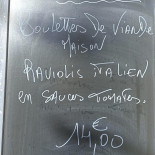 Boulettes De Viande
Maison
Raviolis italien
en sauces tomates.
14,00 €